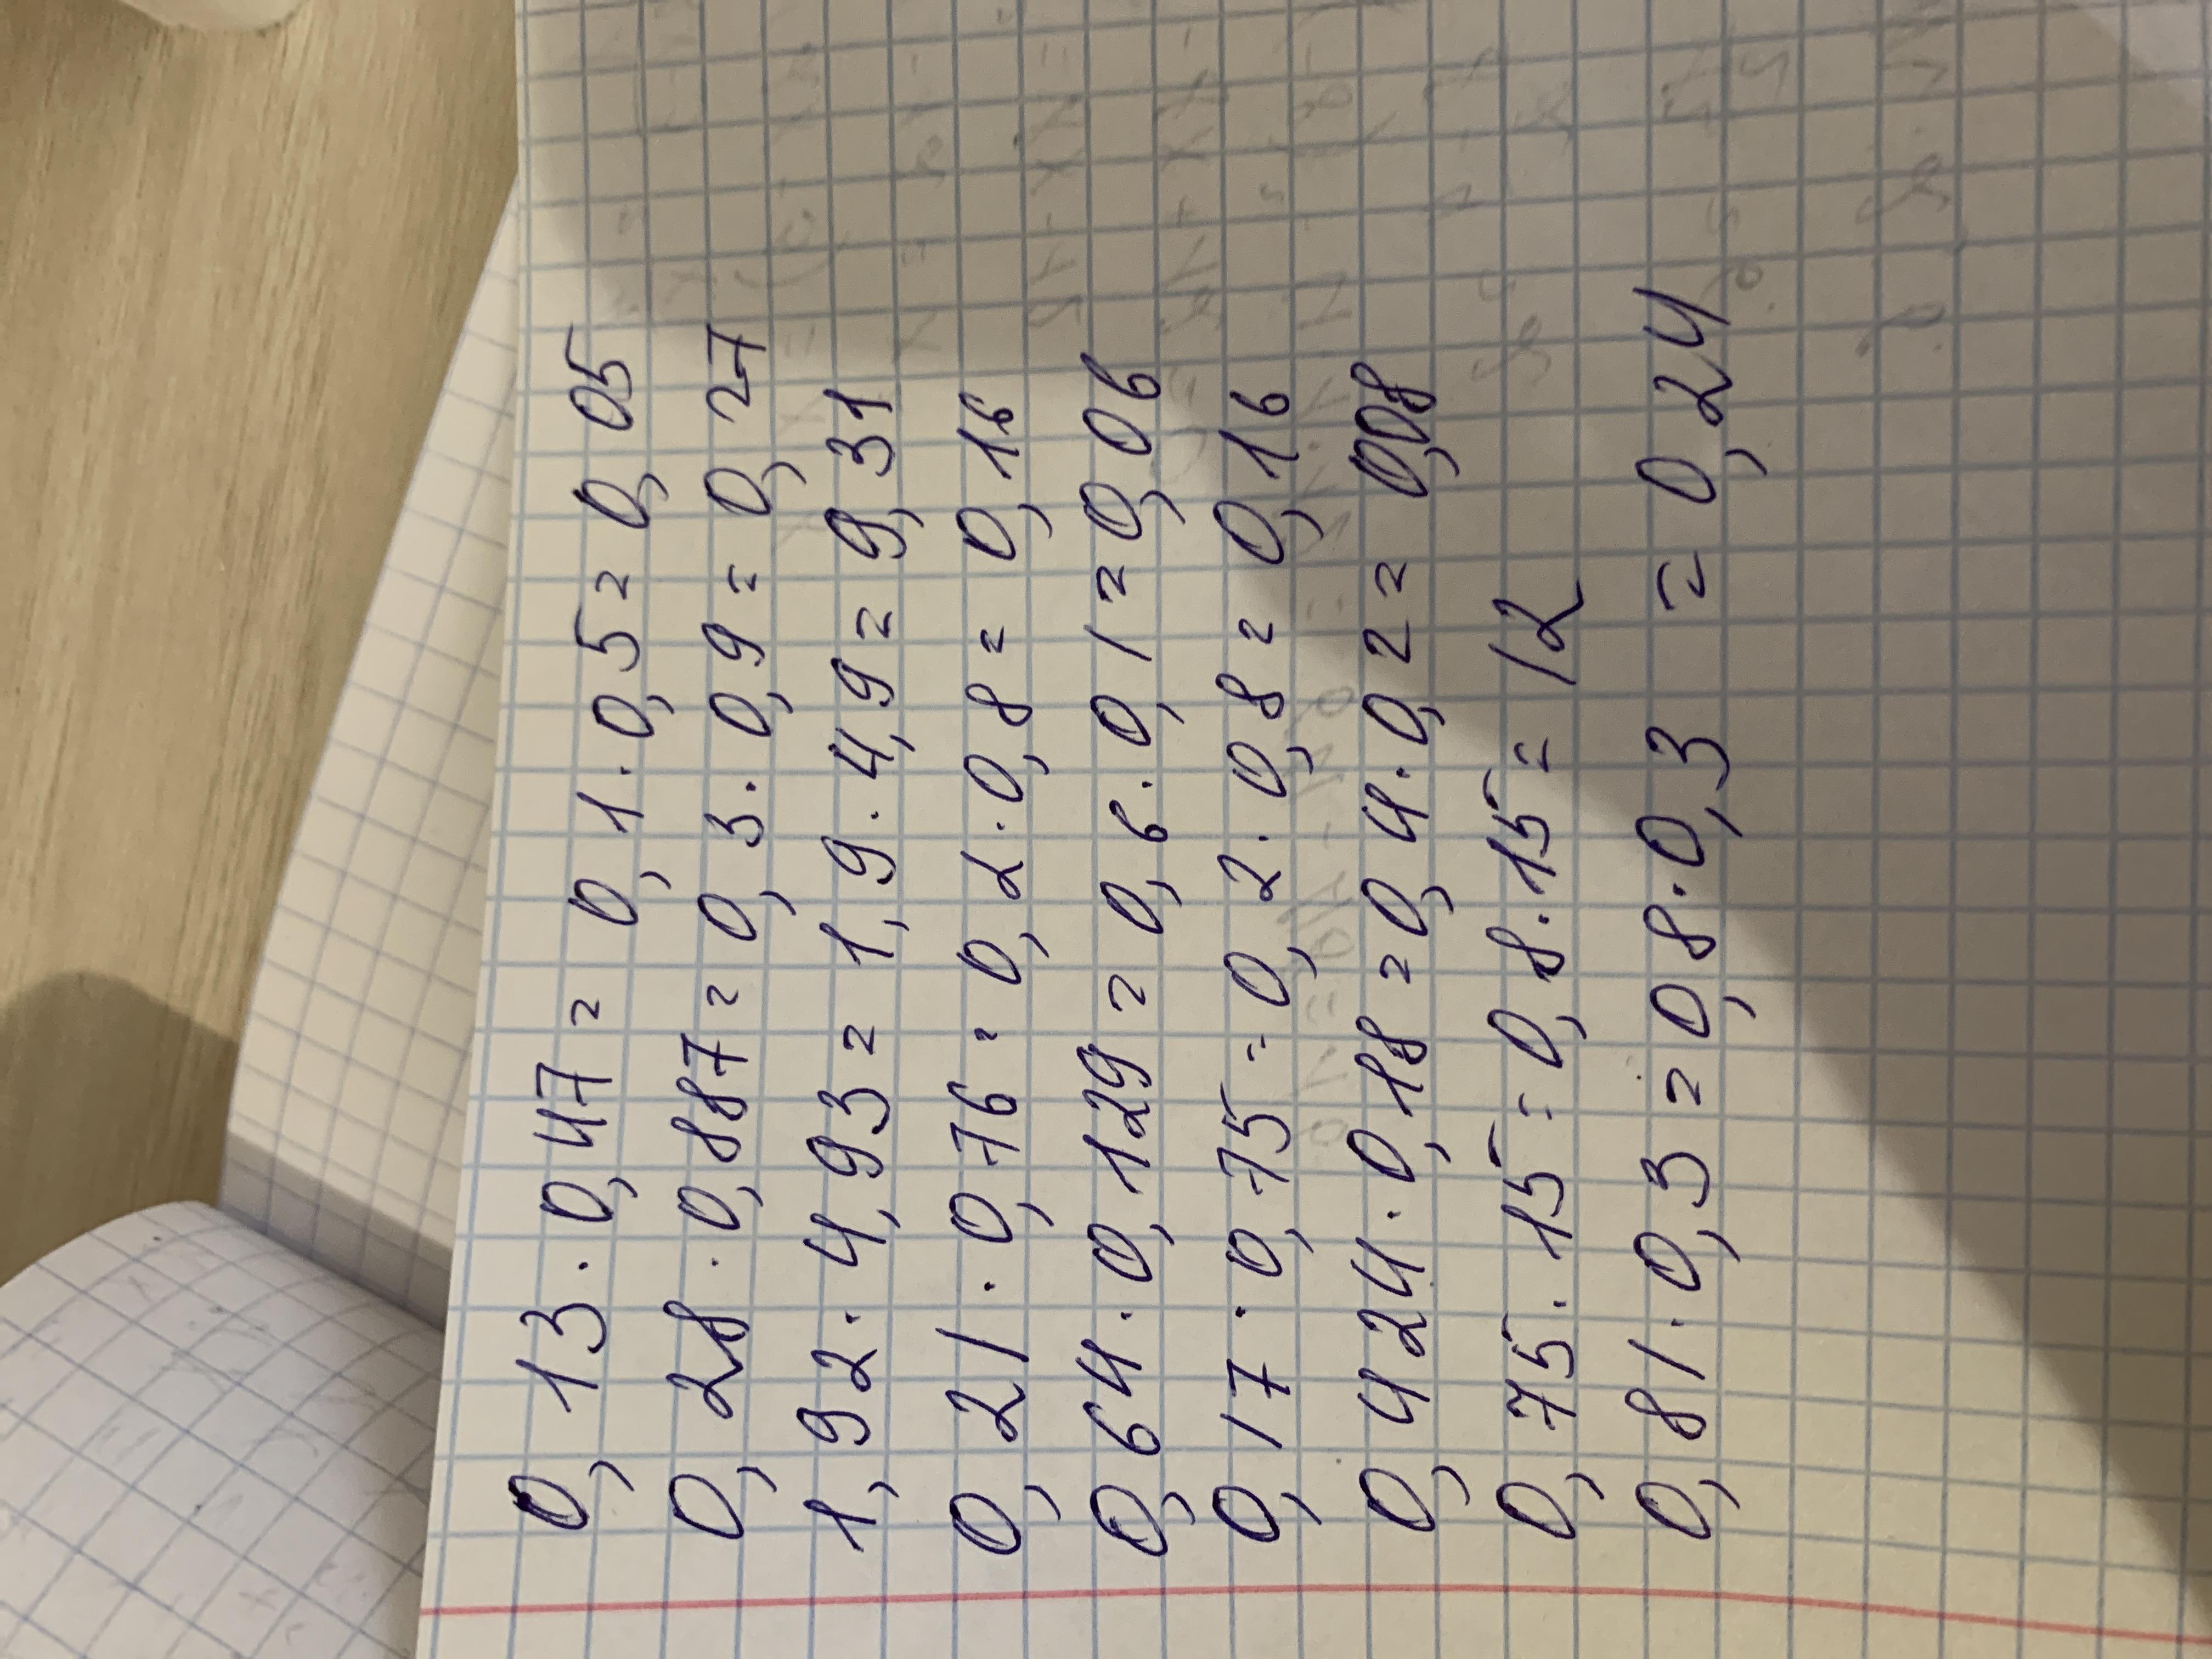 0,13·0,47= 0,1·0,5=0,05
0,28·0,887=0,3·0,9=0,27
1,92·4,93=1,9·4,9=9,31
0,21·0,76=0,2·0,8=0,16
0,64·0,129=0,6·0,1=0,06
0,17·0,75=0,2·0,8=0,16
0,424·0,18=0,4·0,2=0,08
0,75·15=0,8·15=12
0,81·0,3=0,8·0,3 =0,24